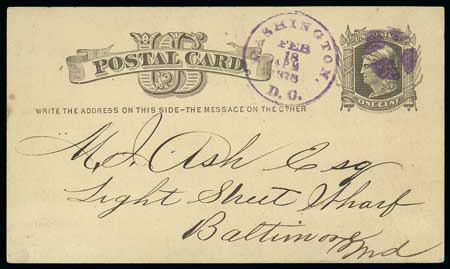 US
POSTAL CARD.
WASHINGTON,
FEB
18
1878
D.C.
U.S. POSTAGE
ONE CENT
WRITE THE ADDRESS ON THIS SIDE-THE MESSAGE ON THE OTHER
M. J. Ash Esq
Light Street Wharf
Baltimore
Md